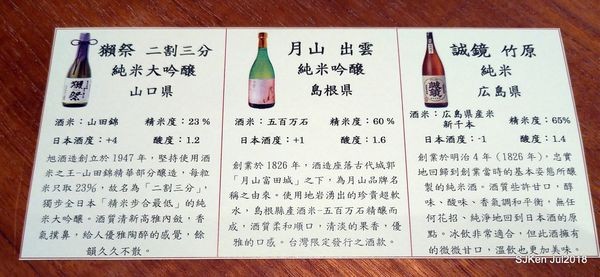 獺祭 二割三分
純米大吟釀
山口県
酒米:山田錦 精米度:23%
日本酒度:+4 酸度:1.2
旭酒造創立於1947年,堅持使用酒
米之王-山田錦精華部分釀造,每粒
米只取23%,故名為「二割三分」,
獨步全日本「精米步合最低」的純
米大吟釀。酒質清新高雅內斂,香
氣撲鼻,給人優雅陶醉的感覺,餘
韻久久不散。
月山 出雲
純米吟釀
島根県
酒米:五百萬石 精米度:60%
日本酒度:+1 酸度:1.6
創業於1826年,酒造座落古代城郭
「月山富田城」之下,為月山品牌名
稱之由來。使用地岩湧出的珍貴超軟
水,島根縣產酒米-五百万石精釀而
成,酒質柔和順口,清淡的果香,優
雅的口感。台灣限定發行之酒款。
誠鏡 竹原
純米
広島県
酒米:広島県産米
新千本
精米度:65%
日本酒度:-1 酸度:1.4
創業於明治4年(1826年),忠實
地回歸到創業當時的基本姿態所釀
製的純米酒。酒質些許甘口,醇
味、酸味、香氣調和平衡,無任
何花招、純淨地回到日本酒的原
點。冰飲非常適合,但此酒擁有
的微微甘口,溫飲也更加美味。
SJKen Jul2018